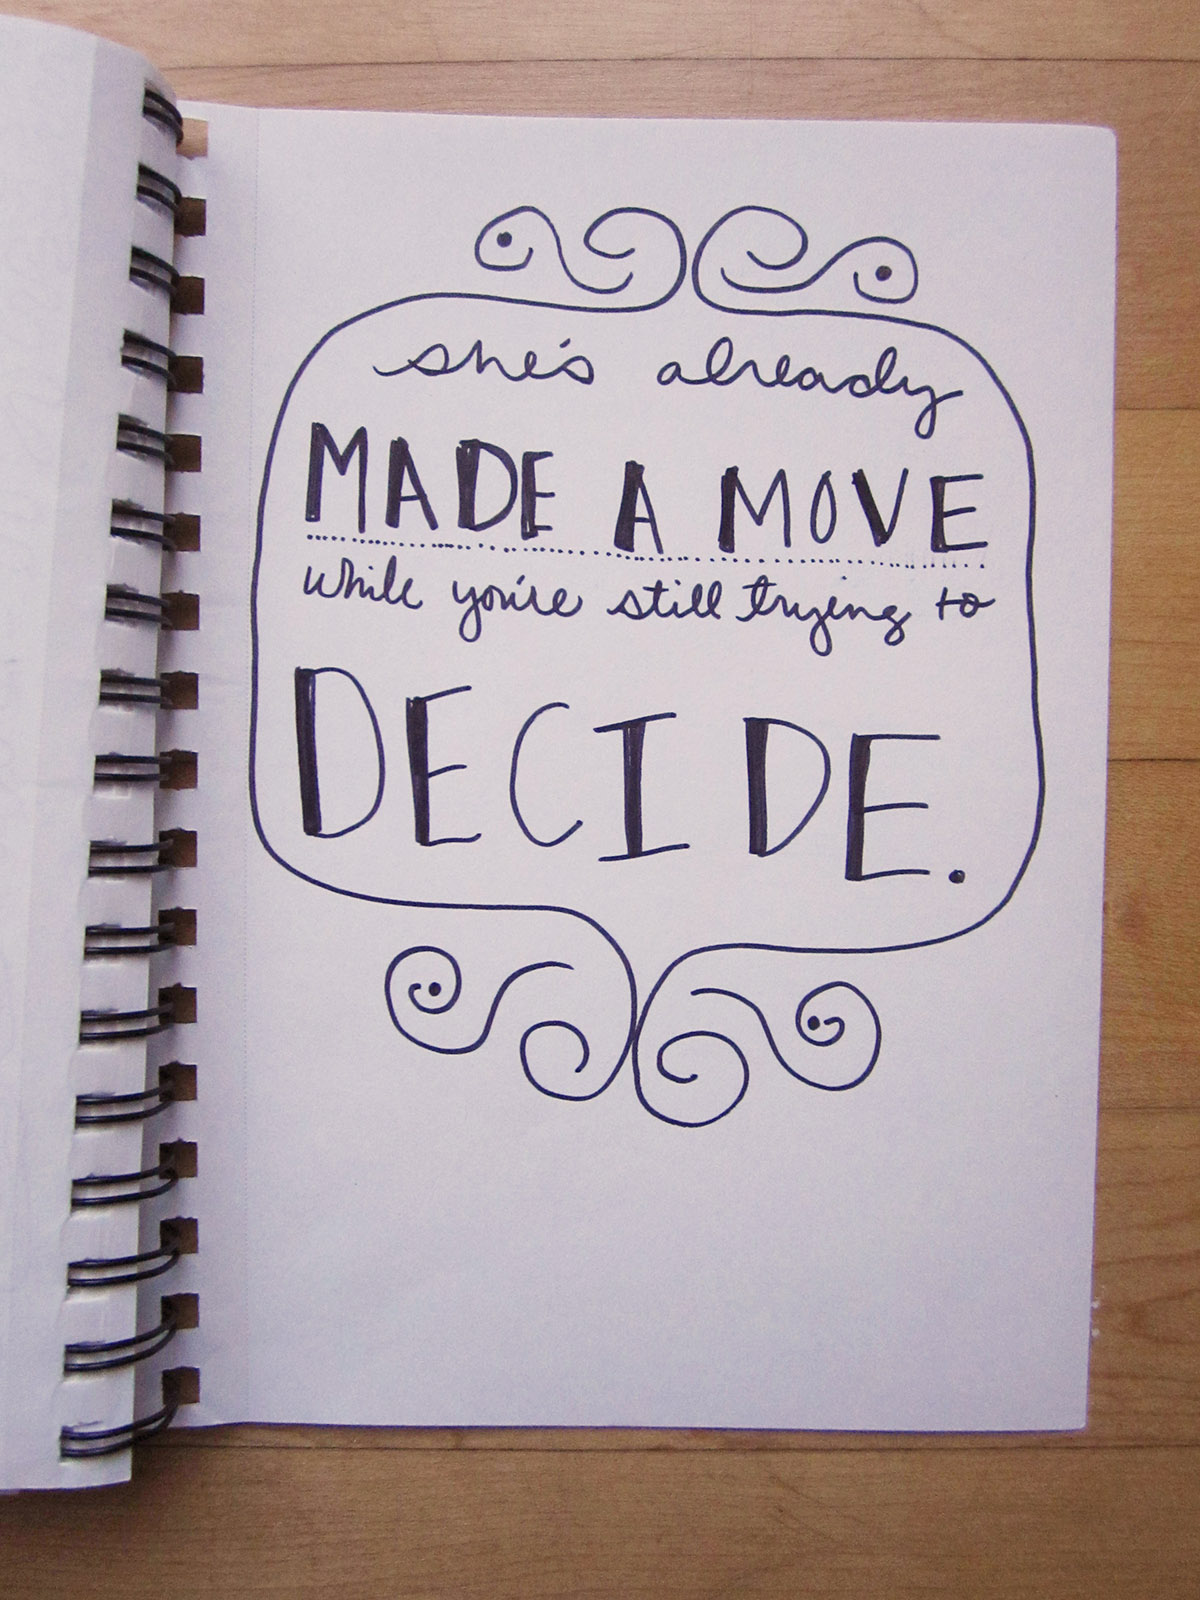 she's already
MADE A MOVE
while you're still trying to
DECIDE.